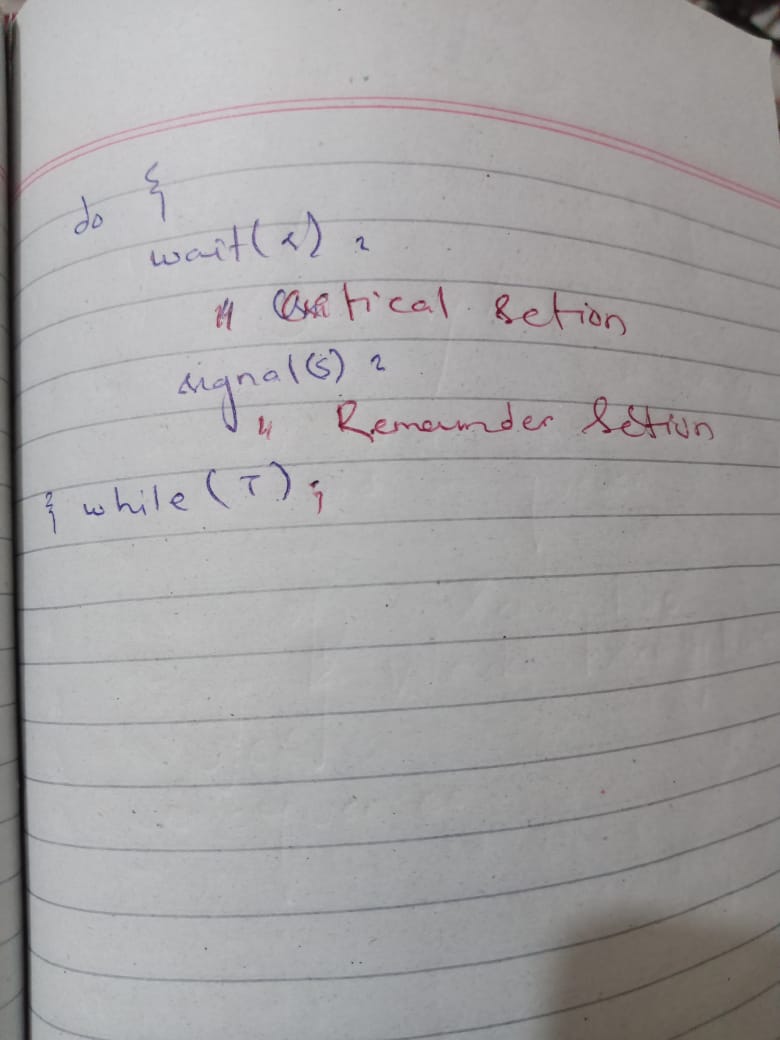 do {
wait(s) ;
// Critical Setion
signal(s) ;
// Remainder Setion
} while (T) ;